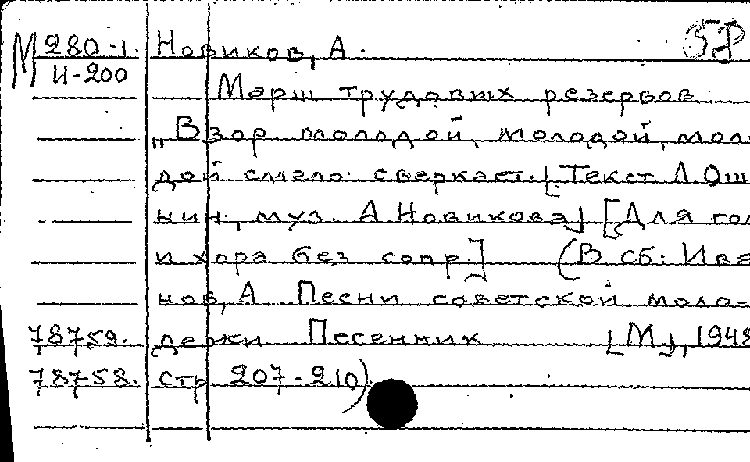 М 280-1. Новиков, А. 58
И-200
Марш трудовых резервов
„Взор молодой, молодой, моло
дой смело сверкает. [Текст Л. Оша
нин, муз. А. Новикова] [Для гол
и хора без сопр.] (В сб: Ива
нов, А. Песни советской моло-
78759. дежи Песенник [М], 1948
78758. стр 207-210)